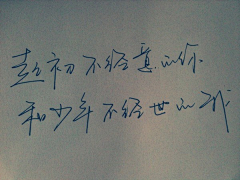 起初不经意的你
和少年不经世的我